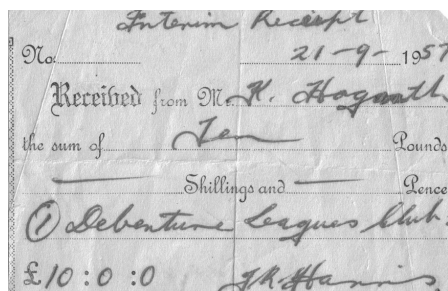 Interim Receipt
No. 21-9-1957
Received from Mr. K. Hogarth
the sum of Ten Pounds
— Shillings and — Pence
① Debenture Leagues Club.
£10:0:0 J.R. Harris